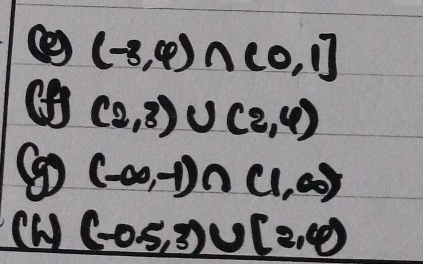 (e) (-3,4) ∩ (0,1]
(f) (2,3) ∪ (2,4)
(g) (-∞,-1) ∩ (1,∞)
(h) (-0.5,3) ∪ [2,4)